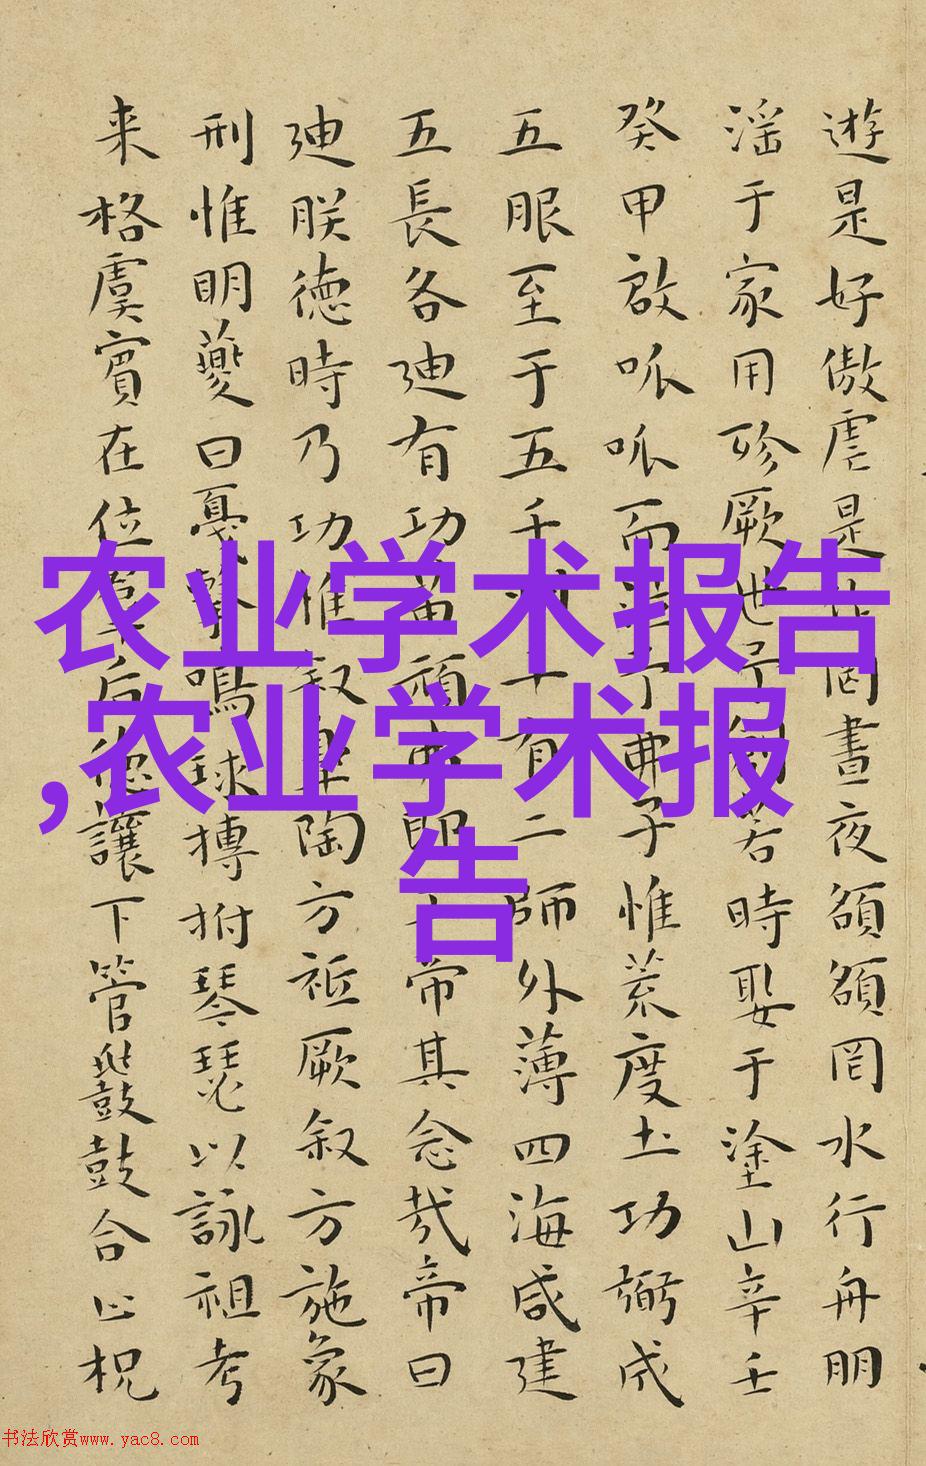 遊是好傲虐是作罔晝夜頟頟罔水行舟朋
滛于家用殄厥世予創若時娶于塗山辛壬
癸甲啟呱呱而泣予弗子惟荒度土功弼成
五服至于五千州十有二師外薄四海咸建
五長各迪有功苗頑弗即工帝其念哉帝曰
迪朕德時乃功惟叙皐陶方祗厥叙方施象
刑惟明夔曰戛擊鳴球搏拊琴瑟以詠祖考
来格虞賓在位羣后德讓下管鼗鼓合止柷
农业学术报告
,农业学术报
告
书法欣赏www.yac8.com